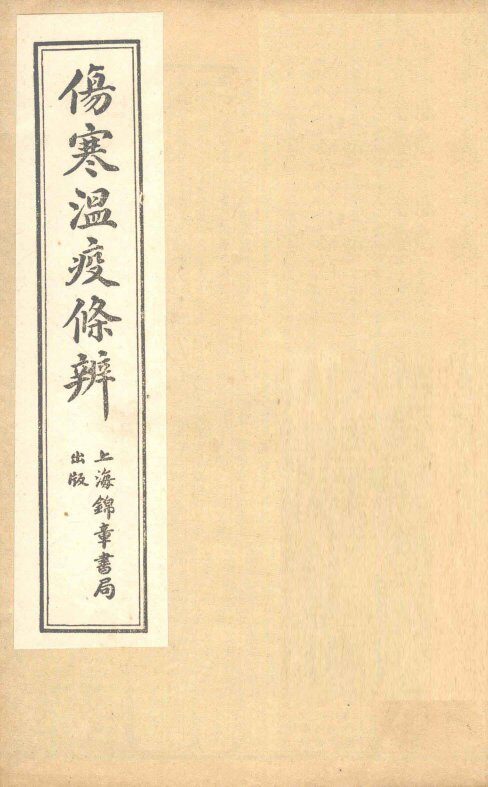 傷寒溫疫條辨
上海錦章書局
出版